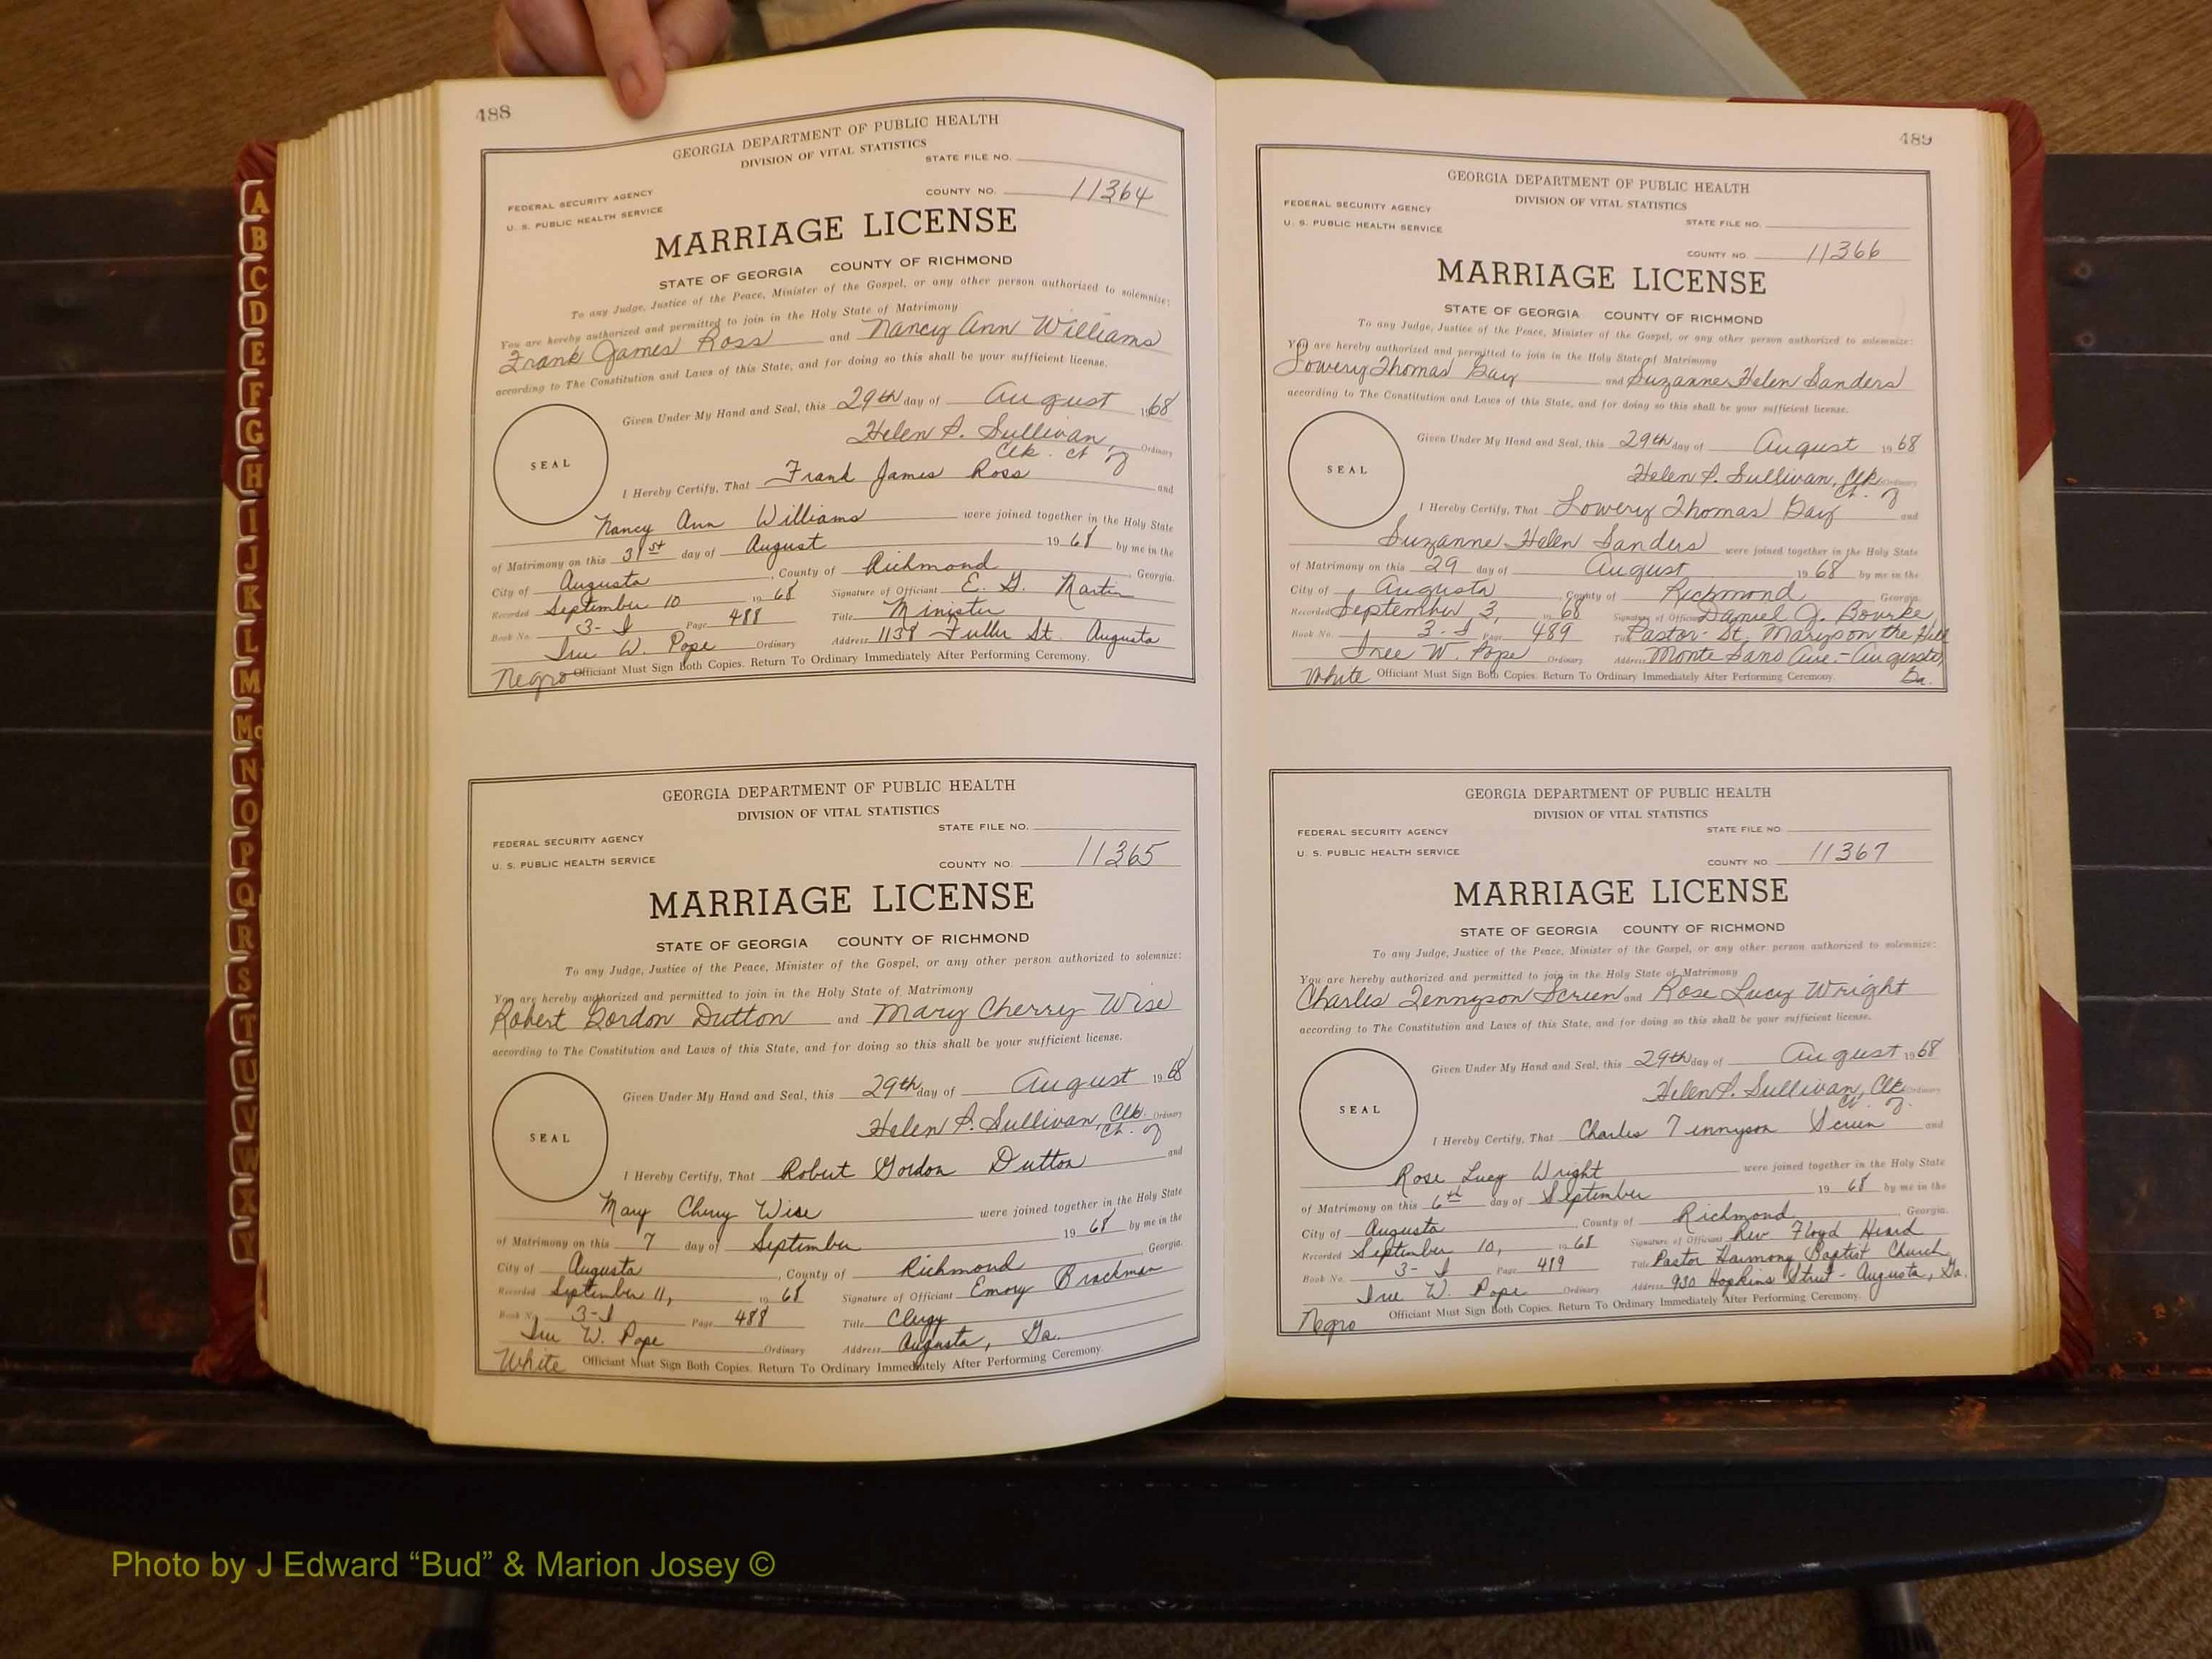 488
GEORGIA DEPARTMENT OF PUBLIC HEALTH
DIVISION OF VITAL STATISTICS
STATE FILE NO.
FEDERAL SECURITY AGENCY
U. S. PUBLIC HEALTH SERVICE
COUNTY NO. 11364
MARRIAGE LICENSE
STATE OF GEORGIA COUNTY OF RICHMOND
To any Judge, Justice of the Peace, Minister of the Gospel, or any other person authorized to solemnize:
You are hereby authorized and permitted to join in the Holy State of Matrimony
Frank James Ross and Nancy Ann Williams
according to The Constitution and Laws of this State, and for doing so this shall be your sufficient license.
Given Under My Hand and Seal, this 29th day of August 1968
Helen P. Sullivan, Ordinary
Clk. ct of
SEAL
I Hereby Certify, That Frank James Ross and
Nancy Ann Williams were joined together in the Holy State
of Matrimony on this 31st day of August 1968 by me in the
City of Augusta, County of Richmond, Georgia.
Recorded September 10 1968 Signature of Officiant E. G. Martin
Book No. 3-I Page 488 Title Minister
Iree W. Pope Ordinary Address 1138 Fuller St. Augusta
Negro Officiant Must Sign Both Copies. Return To Ordinary Immediately After Performing Ceremony.
GEORGIA DEPARTMENT OF PUBLIC HEALTH
DIVISION OF VITAL STATISTICS
STATE FILE NO.
FEDERAL SECURITY AGENCY
U. S. PUBLIC HEALTH SERVICE
COUNTY NO. 11365
MARRIAGE LICENSE
STATE OF GEORGIA COUNTY OF RICHMOND
To any Judge, Justice of the Peace, Minister of the Gospel, or any other person authorized to solemnize:
You are hereby authorized and permitted to join in the Holy State of Matrimony
Robert Gordon Dutton and Mary Cherry Wise
according to The Constitution and Laws of this State, and for doing so this shall be your sufficient license.
Given Under My Hand and Seal, this 29th day of August 1968
Helen P. Sullivan, Clk. Ordinary
Ct. of
SEAL
I Hereby Certify, That Robert Gordon Dutton and
Mary Cherry Wise were joined together in the Holy State
of Matrimony on this 7 day of September 1968 by me in the
City of Augusta, County of Richmond Georgia.
Recorded September 11, 1968 Signature of Officiant Emory Brackman
Book No. 3-I Page 488 Title Clergy
Iree W. Pope Ordinary Address Augusta, Ga.
White Officiant Must Sign Both Copies. Return To Ordinary Immediately After Performing Ceremony.
489
GEORGIA DEPARTMENT OF PUBLIC HEALTH
DIVISION OF VITAL STATISTICS
FEDERAL SECURITY AGENCY
U. S. PUBLIC HEALTH SERVICE
STATE FILE NO.
COUNTY NO. 11366
MARRIAGE LICENSE
STATE OF GEORGIA COUNTY OF RICHMOND
To any Judge, Justice of the Peace, Minister of the Gospel, or any other person authorized to solemnize:
You are hereby authorized and permitted to join in the Holy State of Matrimony
Lowery Thomas Gay and Suzanne Helen Sanders
according to The Constitution and Laws of this State, and for doing so this shall be your sufficient license.
Given Under My Hand and Seal, this 29th day of August 1968
Helen P. Sullivan, Clk. Ordinary
Ct. of
SEAL
I Hereby Certify, That Lowery Thomas Gay and
Suzanne Helen Sanders were joined together in the Holy State
of Matrimony on this 29 day of August 1968 by me in the
City of Augusta, County of Richmond, Georgia.
Recorded September 3, 1968 Signature of Officiant Daniel J. Bourke
Book No. 3-I Page 489 Title Pastor - St. Marys on the Hill
Iree W. Pope Ordinary Address Monte Sano Ave. - Augusta,
White Officiant Must Sign Both Copies. Return To Ordinary Immediately After Performing Ceremony. Ga.
GEORGIA DEPARTMENT OF PUBLIC HEALTH
DIVISION OF VITAL STATISTICS
FEDERAL SECURITY AGENCY
STATE FILE NO.
U. S. PUBLIC HEALTH SERVICE
COUNTY NO. 11367
MARRIAGE LICENSE
STATE OF GEORGIA COUNTY OF RICHMOND
To any Judge, Justice of the Peace, Minister of the Gospel, or any other person authorized to solemnize:
You are hereby authorized and permitted to join in the Holy State of Matrimony
Charles Tennyson Scrien and Rose Lucy Wright
according to The Constitution and Laws of this State, and for doing so this shall be your sufficient license.
Given Under My Hand and Seal, this 29th day of August 1968
Helen P. Sullivan, Clk. Ordinary
Ct. of.
SEAL
I Hereby Certify, That Charles Tennyson Scrien and
Rose Lucy Wright were joined together in the Holy State
of Matrimony on this 6th day of September 1968 by me in the
City of Augusta, County of Richmond, Georgia.
Recorded September 10, 1968 Signature of Officiant Rev Floyd Heard
Book No. 3-I Page 489 Title Pastor Harmony Baptist Church
Iree W. Pope Ordinary Address 930 Hopkins Street - Augusta, Ga.
Negro Officiant Must Sign Both Copies. Return To Ordinary Immediately After Performing Ceremony.
A
B
C
D
E
F
G
H
I
J
K
L
M
Mc
N
O
P
Q
R
S
T
U
V
W
X
Y
Photo by J Edward “Bud” & Marion Josey ©